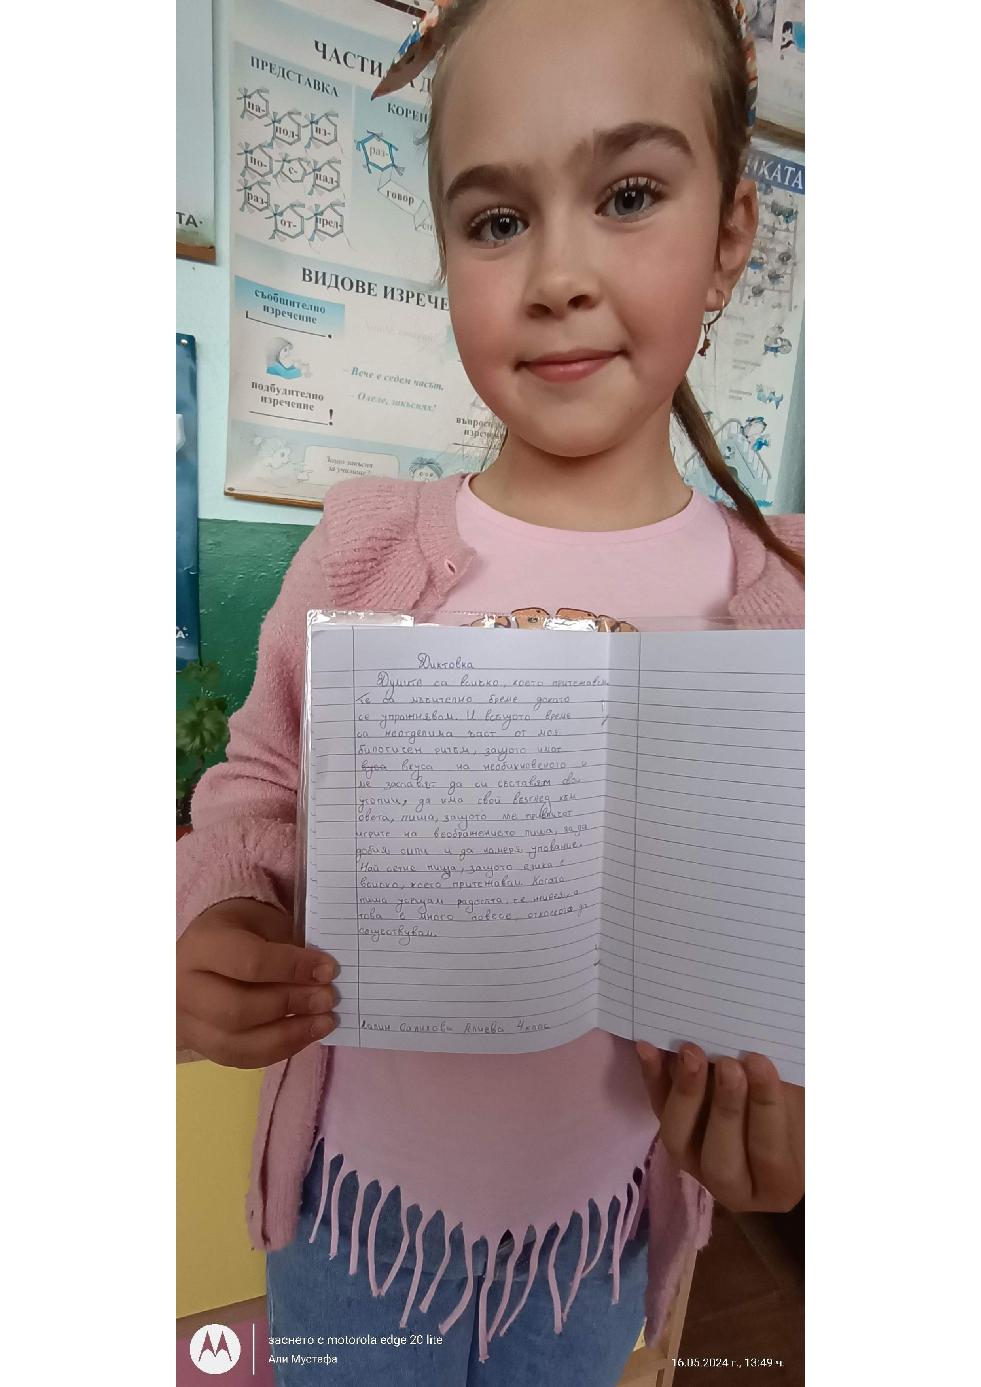 ЧАСТИ НА Д
ПРЕДСТАВКА
КОРЕН
на-
пол-
из-
раз-
по-
с-
над-
раз-
от-
пред-
говор
КАТА
ТА
ВИДОВЕ ИЗРЕЧЕ
съобщително
изречение
.
– Вече е седем часът.
– Олеле, закъснях!
подбудително
изречение
!
въпрос
изрече
Защо закъсня
за училище?
Диктовка
Думите са всичко, което притежавам
Те са мъчително бреме докато
се упражнявам. И всъщото време
са неотделима част от моя
биологисен ритъм, защото имат
вкуса на необикновеното и
ме заставят да си съставям свои
утопии, да има свой възглед към
света, пиша, защото ме привлисат
игрите на въображението пиша, за да
добия сили и да намеря упование.
Най сетне пиша, защото езика е
всисko, което притежавам. Когато
пиша усещам радостта, се живея, а
това е много повесе, отколкото да
съществувам.
Салихова Алиева 4 клас
заснето с motorola edge 20 lite
Али Мустафа
16.05.2024 г., 13:49 ч.